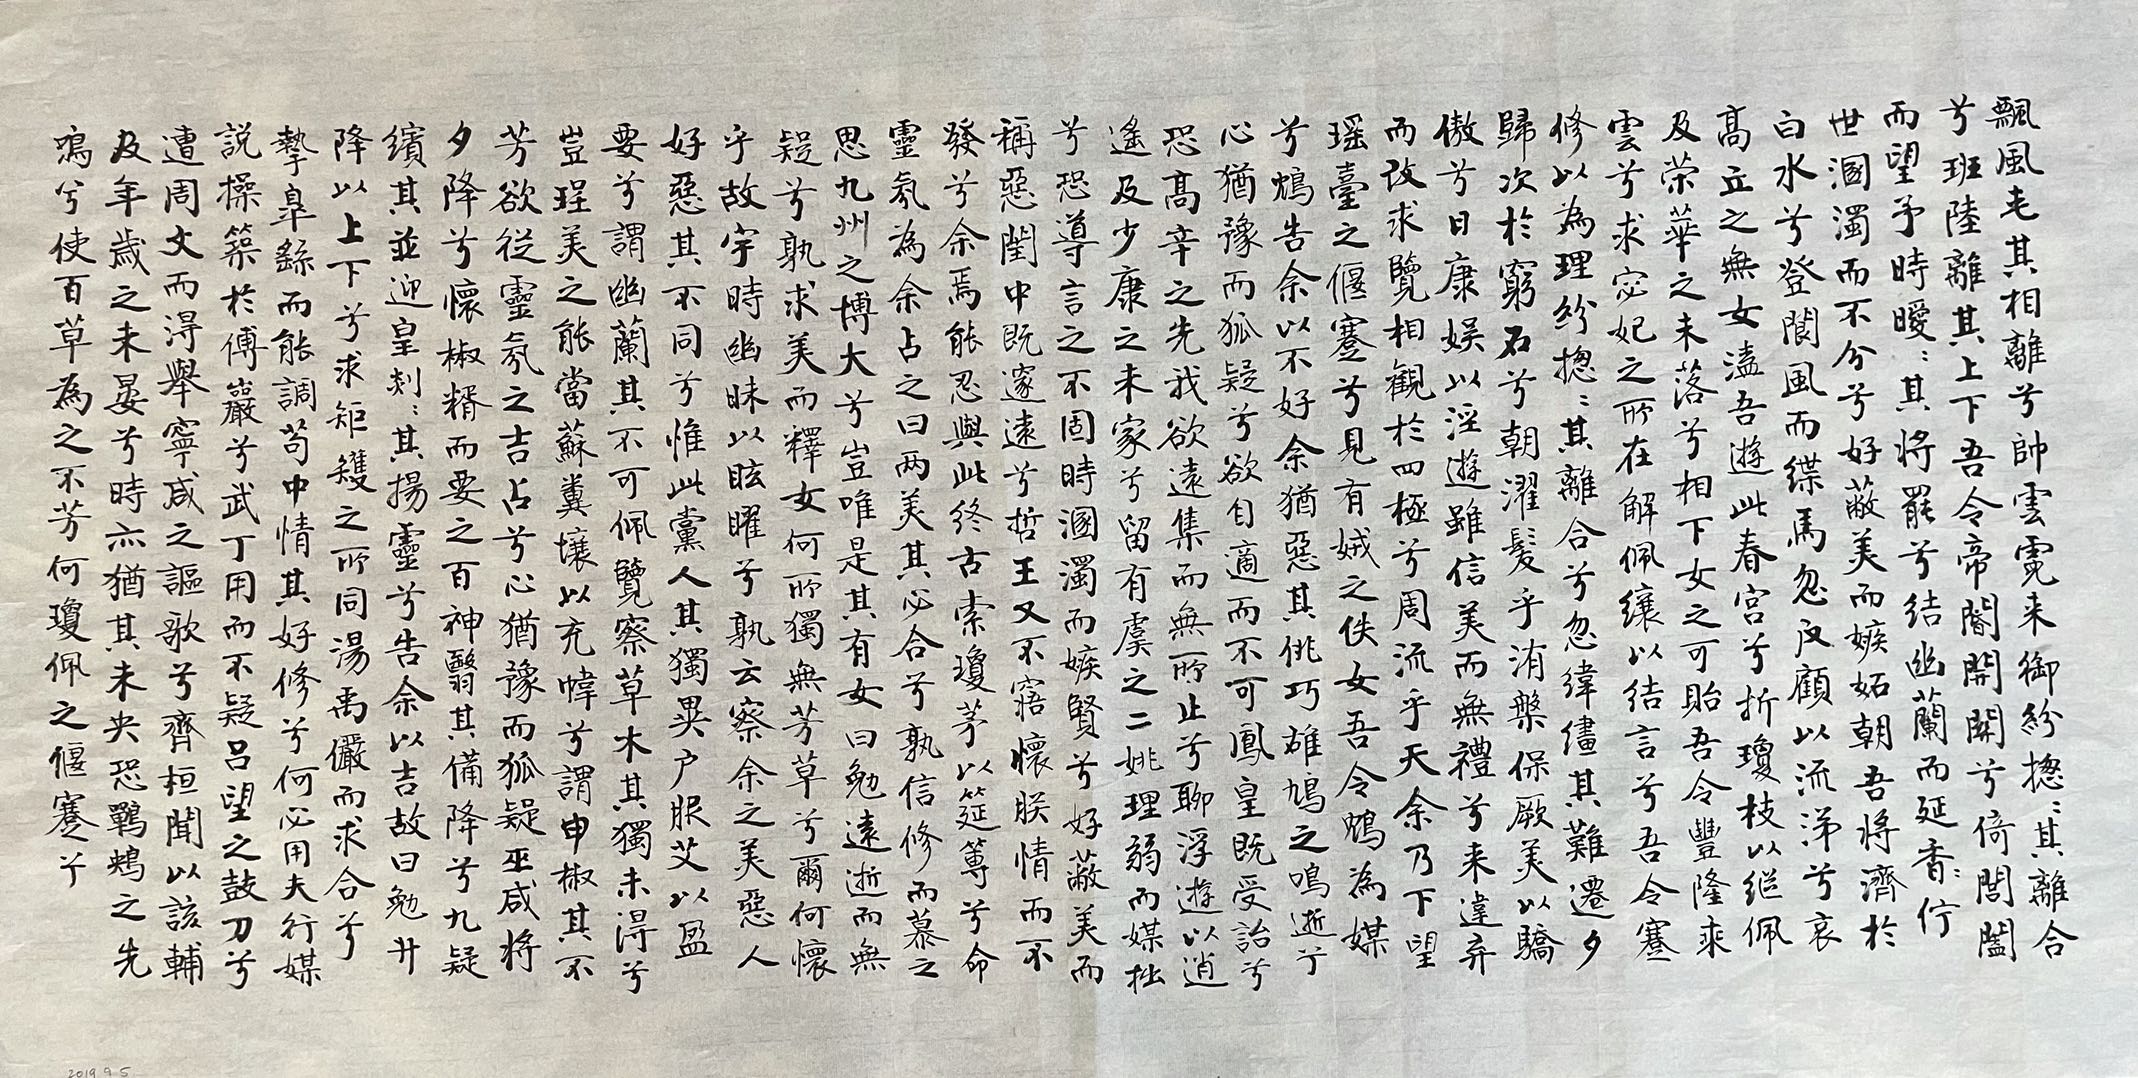 飄風屯其相離兮帥雲霓来御紛揔〻其離合
兮班陸離其上下吾令帝閽開関兮倚閶闔
而望予時曖〻其将罷兮结幽蘭而延香〻佇
世溷濁而不分兮好蔽美而嫉妬朝吾将濟於
白水兮登閬風而緤馬忽反顧以流涕兮哀
髙丘之無女溘吾遊此春宮兮折瓊枝以継佩
及荣華之未落兮相下女之可貽吾令豐隆乘
雲兮求宓妃之所在解佩纕以结言兮吾令蹇
修以為理紛揔〻其離合兮忽緯繣其難遷夕
歸次於窮石兮朝濯髮乎洧槃保厥美以驕
傲兮日康娱以淫遊雖信美而無禮兮来違弃
而改求覽相觀於四極兮周流乎天余乃下望
瑶臺之偃蹇兮見有娀之佚女吾令鴆為媒
兮鴆告余以不好余猶惡其佻巧雄鳩之鳴逝兮
心猶豫而狐疑兮欲自適而不可鳳皇既受詒兮
恐髙辛之先我欲遠集而無所止兮聊浮遊以逍
遙及少康之未家兮留有虞之二姚理弱而媒拙
兮恐導言之不固時溷濁而嫉賢兮好蔽美而
稱惡閨中既邃遠兮哲王又不寤懷朕情而不
發兮余焉能忍與此终古索瓊茅以筳篿兮命
靈氛為余占之曰两美其必合兮孰信修而慕之
思九州之博大兮豈唯是其有女曰勉遠逝而無
疑兮孰求美而釋女何所獨無芳草兮爾何懷
乎故宇時幽昧以眩曜兮孰云察余之美惡人
好惡其不同兮惟此黨人其獨異户服艾以盈
要兮謂幽蘭其不可佩覽察草木其獨未得兮
豈珵美之能當蘇糞壤以充幃兮謂申椒其不
芳欲従靈氛之吉占兮心猶豫而狐疑巫咸将
夕降兮懷椒糈而要之百神翳其備降兮九疑
繽其並迎皇剡〻其揚靈兮告余以吉故曰勉升
降以上下兮求矩矱之所同湯禹儼而求合兮
摯皐繇而能調苟中情其好修兮何必用夫行媒
説操築於傅巖兮武丁用而不疑吕望之鼓刀兮
遭周文而得舉寧戚之謳歌兮齊桓聞以該輔
及年歲之未晏兮時亦猶其未央恐鷤鴂之先
鳴兮使百草為之不芳何瓊佩之偃蹇兮
2019 9 5